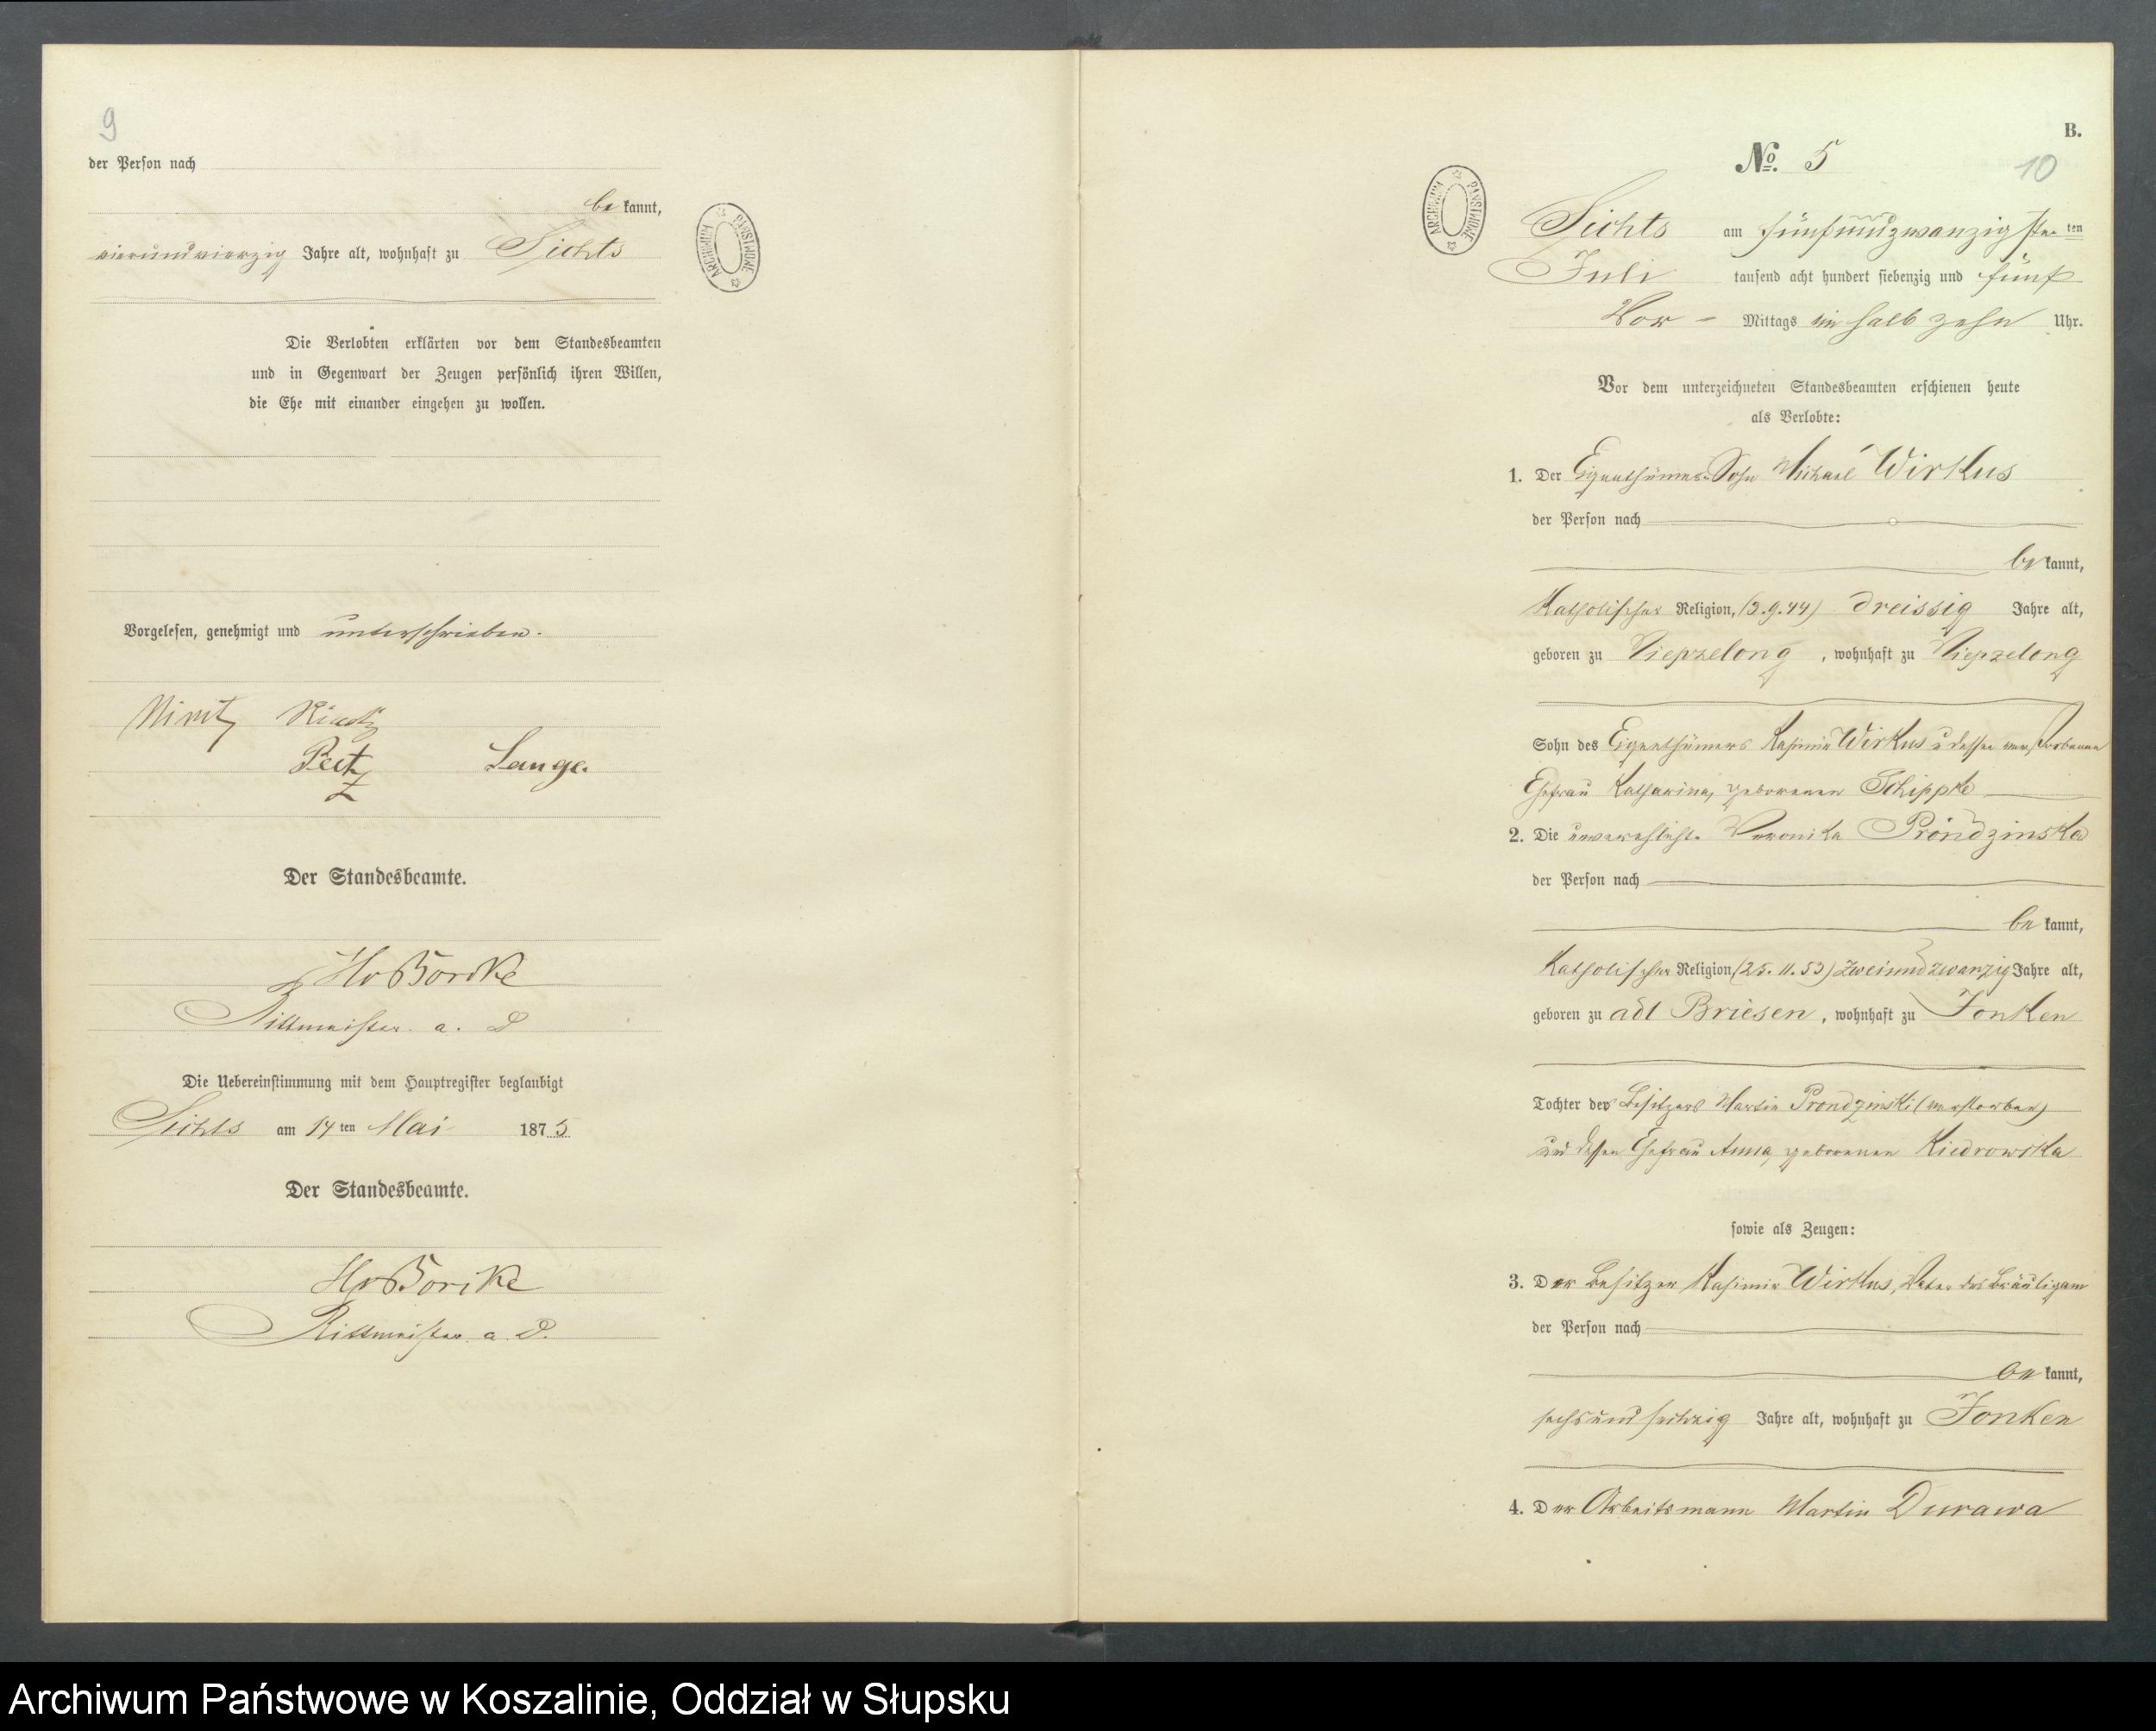 9
der Person nach
bekannt,
vierundvierzig Jahre alt, wohnhaft zu Sichts
ARCHIWUM PAŃSTWOWE
Die Verlobten erklärten vor dem Standesbeamten
und in Gegenwart der Zeugen persönlich ihren Willen,
die Ehe mit einander eingehen zu wollen.
Vorgelesen, genehmigt und unterschrieben.
Lange.
Der Standesbeamte.
HvBorcke
Rittmeister a. D
Die Uebereinstimmung mit dem Hauptregister beglaubigt
Sichts am 14 ten Mai 1875
Der Standesbeamte.
HvBorcke
Rittmeister a. D.
B.
No. 5
10
ARCHIWUM PAŃSTWOWE
Sichts am fünfundzwanzigsten ten
Juli tausend acht hundert siebenzig und fünf
Vor - Mittags um halb zehn Uhr.
Vor dem unterzeichneten Standesbeamten erschienen heute
als Verlobte:
1. Der Eigenthümer-Sohn Michael Wirkus
der Person nach
bekannt,
Katholischer Religion, (3.9.44) dreissig Jahre alt,
geboren zu Viepzelong, wohnhaft zu Viepzelong
Sohn des Eigenthümers Kasimir Wirkus u dessen verstorbenen
Ehefrau Katharina, geborenen Schippke
2. Die unverehlichte Veronika Prondzinska
der Person nach
bekannt,
Katholischer Religion, (25.11.53) zweiundzwanzig Jahre alt,
geboren zu adl Briesen, wohnhaft zu Jonken
Tochter des Besitzers Martin Prondzinski (verstorben)
und dessen Ehefrau Anna, geborenen Kiedrowska
sowie als Zeugen:
3. Der Besitzer Kasimir Wirkus, Vater des Bräutigam
der Person nach
bekannt,
sechsundsechzig Jahre alt, wohnhaft zu Jonken
4. Der Arbeitsmann Martin Durawa
Archiwum Państwowe w Koszalinie, Oddział w Słupsku